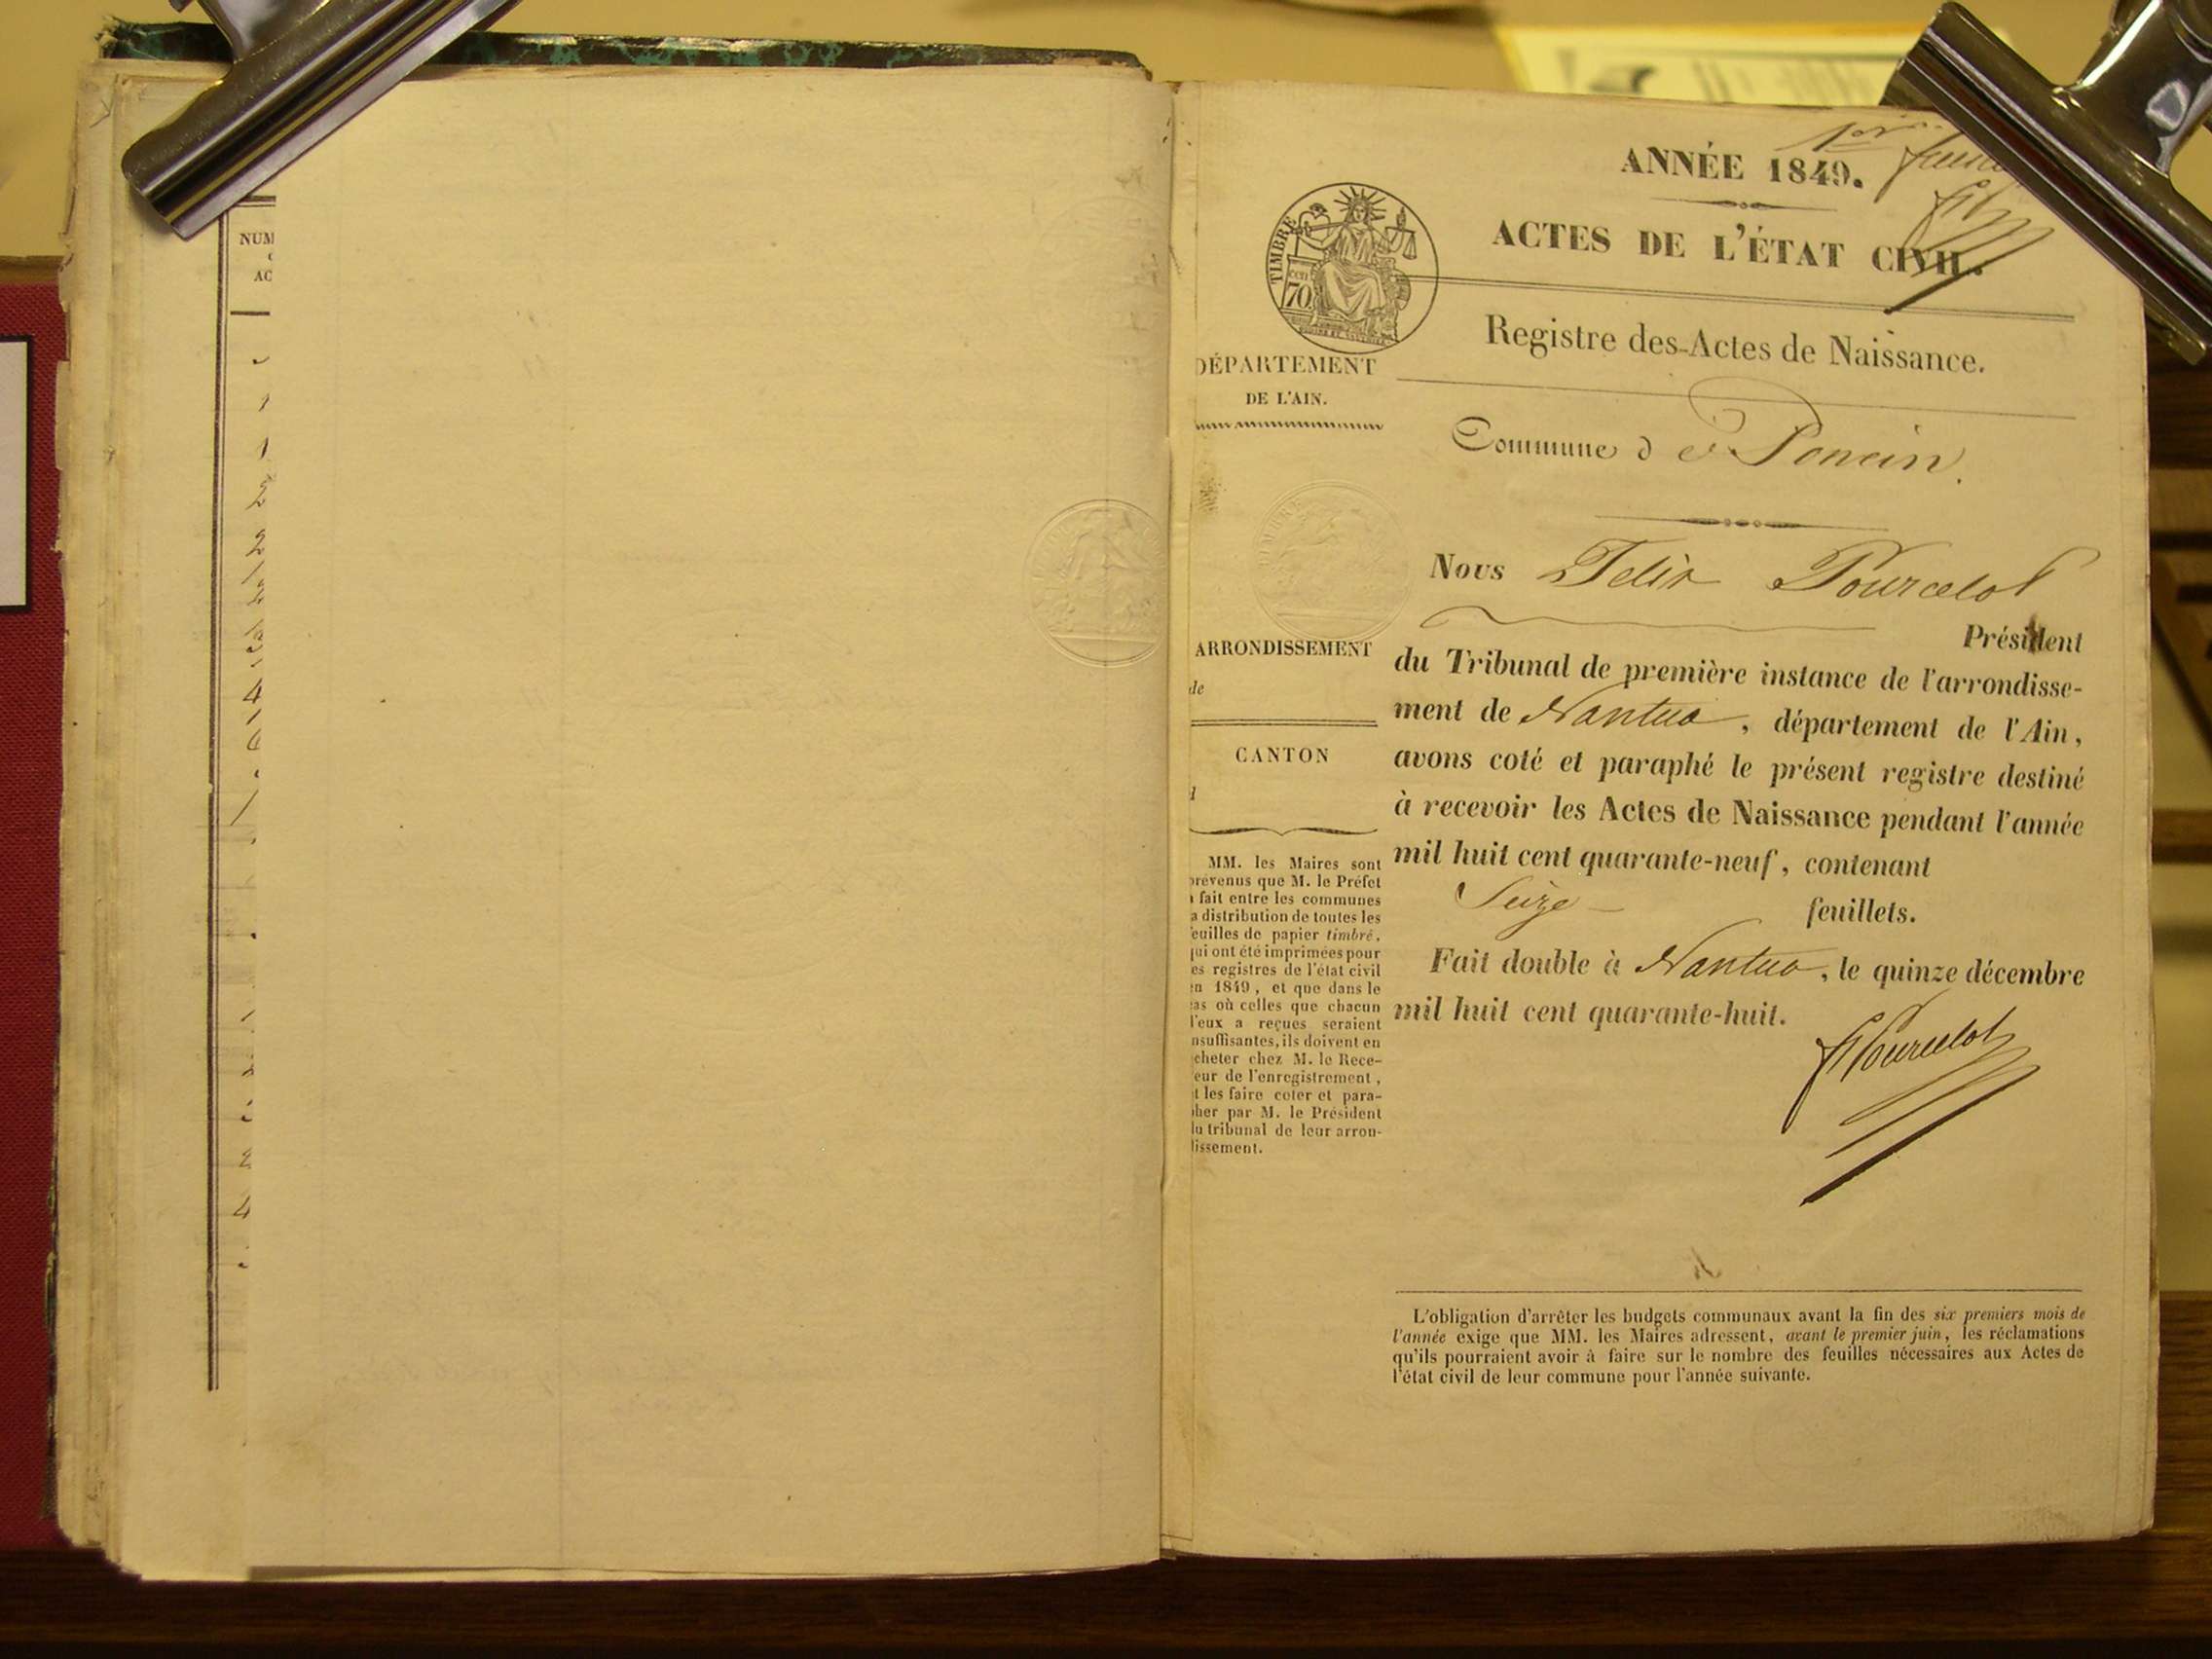 NUM
AC
1er
ANNÉE 1849.
ACTES DE L'ÉTAT CIVIL.
TIMBRE
70
Registre des Actes de Naissance.
DÉPARTEMENT
DE L'AIN.
Commune de Poncin.
Nous Felix Pourcelot
Président
du Tribunal de première instance de l'arrondisse-
ment de Nantua, département de l'Ain,
avons coté et paraphé le présent registre destiné
à recevoir les Actes de Naissance pendant l'année
mil huit cent quarante-neuf, contenant
Seize feuillets.
Fait double à Nantua, le quinze décembre
mil huit cent quarante-huit.
FPourcelot
ARRONDISSEMENT
de
CANTON
MM. les Maires sont
révenus que M. le Préfet
fait entre les communes
a distribution de toutes les
euilles de papier timbré,
qui ont été imprimées pour
es registres de l'état civil
en 1849, et que dans le
cas où celles que chacun
d'eux a reçues seraient
nsuffisantes, ils doivent en
cheter chez M. le Rece-
eur de l'enregistrement,
t les faire coter et para-
pher par M. le Président
du tribunal de leur arron-
dissement.
L'obligation d'arrêter les budgets communaux avant la fin des six premiers mois de
l'année exige que MM. les Maires adressent, avant le premier juin, les réclamations
qu'ils pourraient avoir à faire sur le nombre des feuilles nécessaires aux Actes de
l'état civil de leur commune pour l'année suivante.